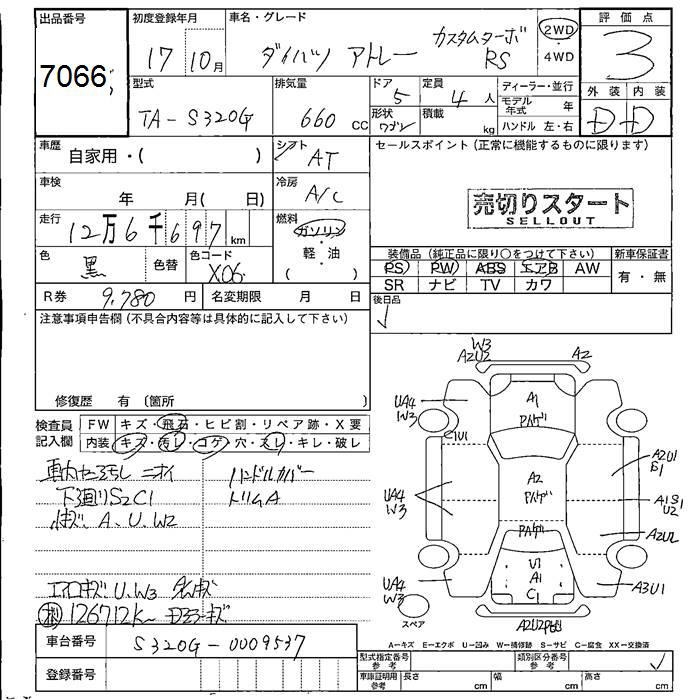 出品番号
7066
初度登録年月
17 10月
車名・グレード
ダイハツ アトレー カスタムターボ RS
2WD
・
4WD
評価点
3
外装 内装
D D
型式
TA-S320G
排気量
660 cc
ドア
5
形状
ワゴン
定員
4人
積載
kg
ディーラー・並行
モデル年式 年
ハンドル 左・右
車歴
自家用・( )
シフト
AT
車検
年 月( 日)
冷房
A/C
走行
12万6千697km
燃料
ガソリン
・
軽・油
( )
色
黒
色替
色コード
X06
R券 9,780 円
名変期限 月 日
セールスポイント(正常に機能するものに限ります)
売切りスタート
SELLOUT
装備品(純正品に限り○をつけて下さい)
新車保証書
PS PW ABS エアB AW
SR ナビ TV カワ
有・無
後日品
注意事項申告欄(不具合内容等は具体的に記入して下さい)
修復歴 有〔箇所 〕
検査員記入欄
FW キズ・飛石・ヒビ割・リペア跡・X要
内装 キズ・汚レ・コゲ・穴・スレ・キレ・破レ
ニオイ
ハンドルカバー
下廻りS2C1
トリムA
A、U、W2
U、W3
126712K
車台番号
S320G-0009537
登録番号
W3
A2U2
A2
UA4
W3
A1
C1U1
A2U1
S1
A2
UA4
W3
A1S1
U2
A2U2
U1
A1
C1
UA4
W3
A3U1
スペア
A2U2
A-キズ E-エクボ U-凹み W-補修跡 S-サビ C-腐食 XX-交換済
型式指定番号
参考
類別区分番号
参考
車庫証明用
参考
長さ cm
幅 cm
高さ cm